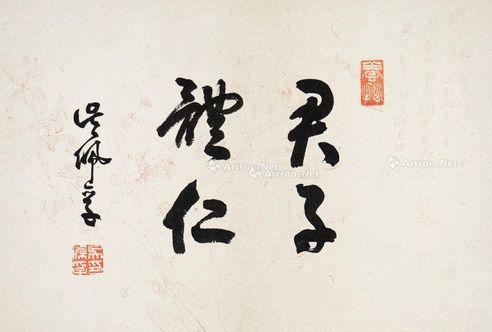 君子
體仁
吳佩孚
Artron.Net
Artron.Net